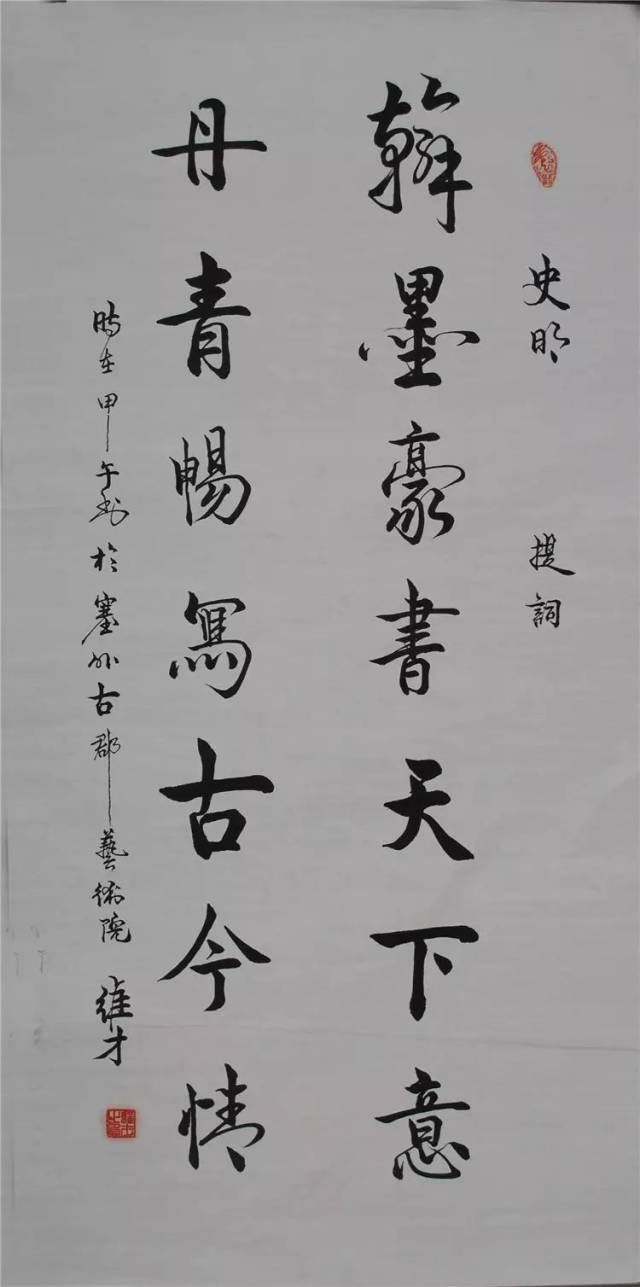 史明 提詞
翰墨豪書天下意
丹青暢寫古今情
時在甲午書於塞外古郡藝術院 維才